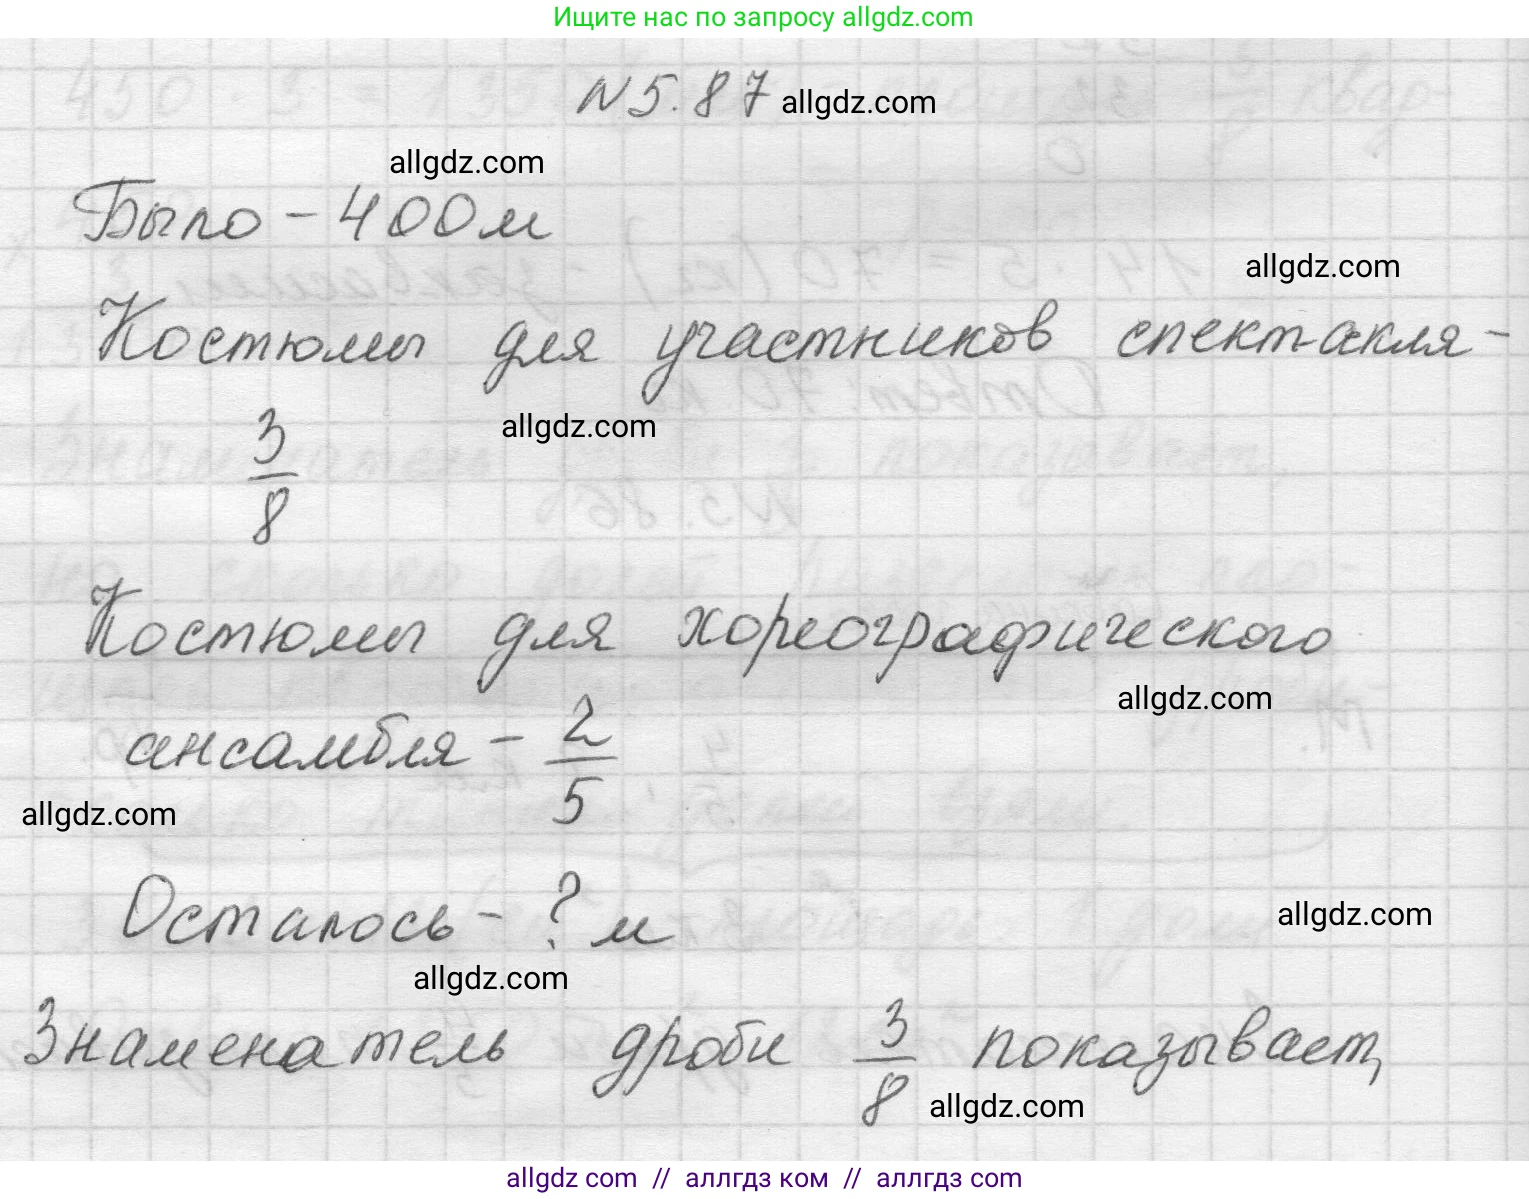 Ищите нас по запросу allgdz.com
N 5.87 allgdz.com
allgdz.com
Было - 400 м
allgdz.com
Костюмы для участников спектакля -
3/8
allgdz.com
Костюмы для хореографического
allgdz.com
ансамбля - 2/5
allgdz.com
Осталось - ? м
allgdz.com
allgdz.com
Знаменатель дроби 3/8 показывает,
allgdz.com
allgdz com // аллгдз ком // аллгдз com